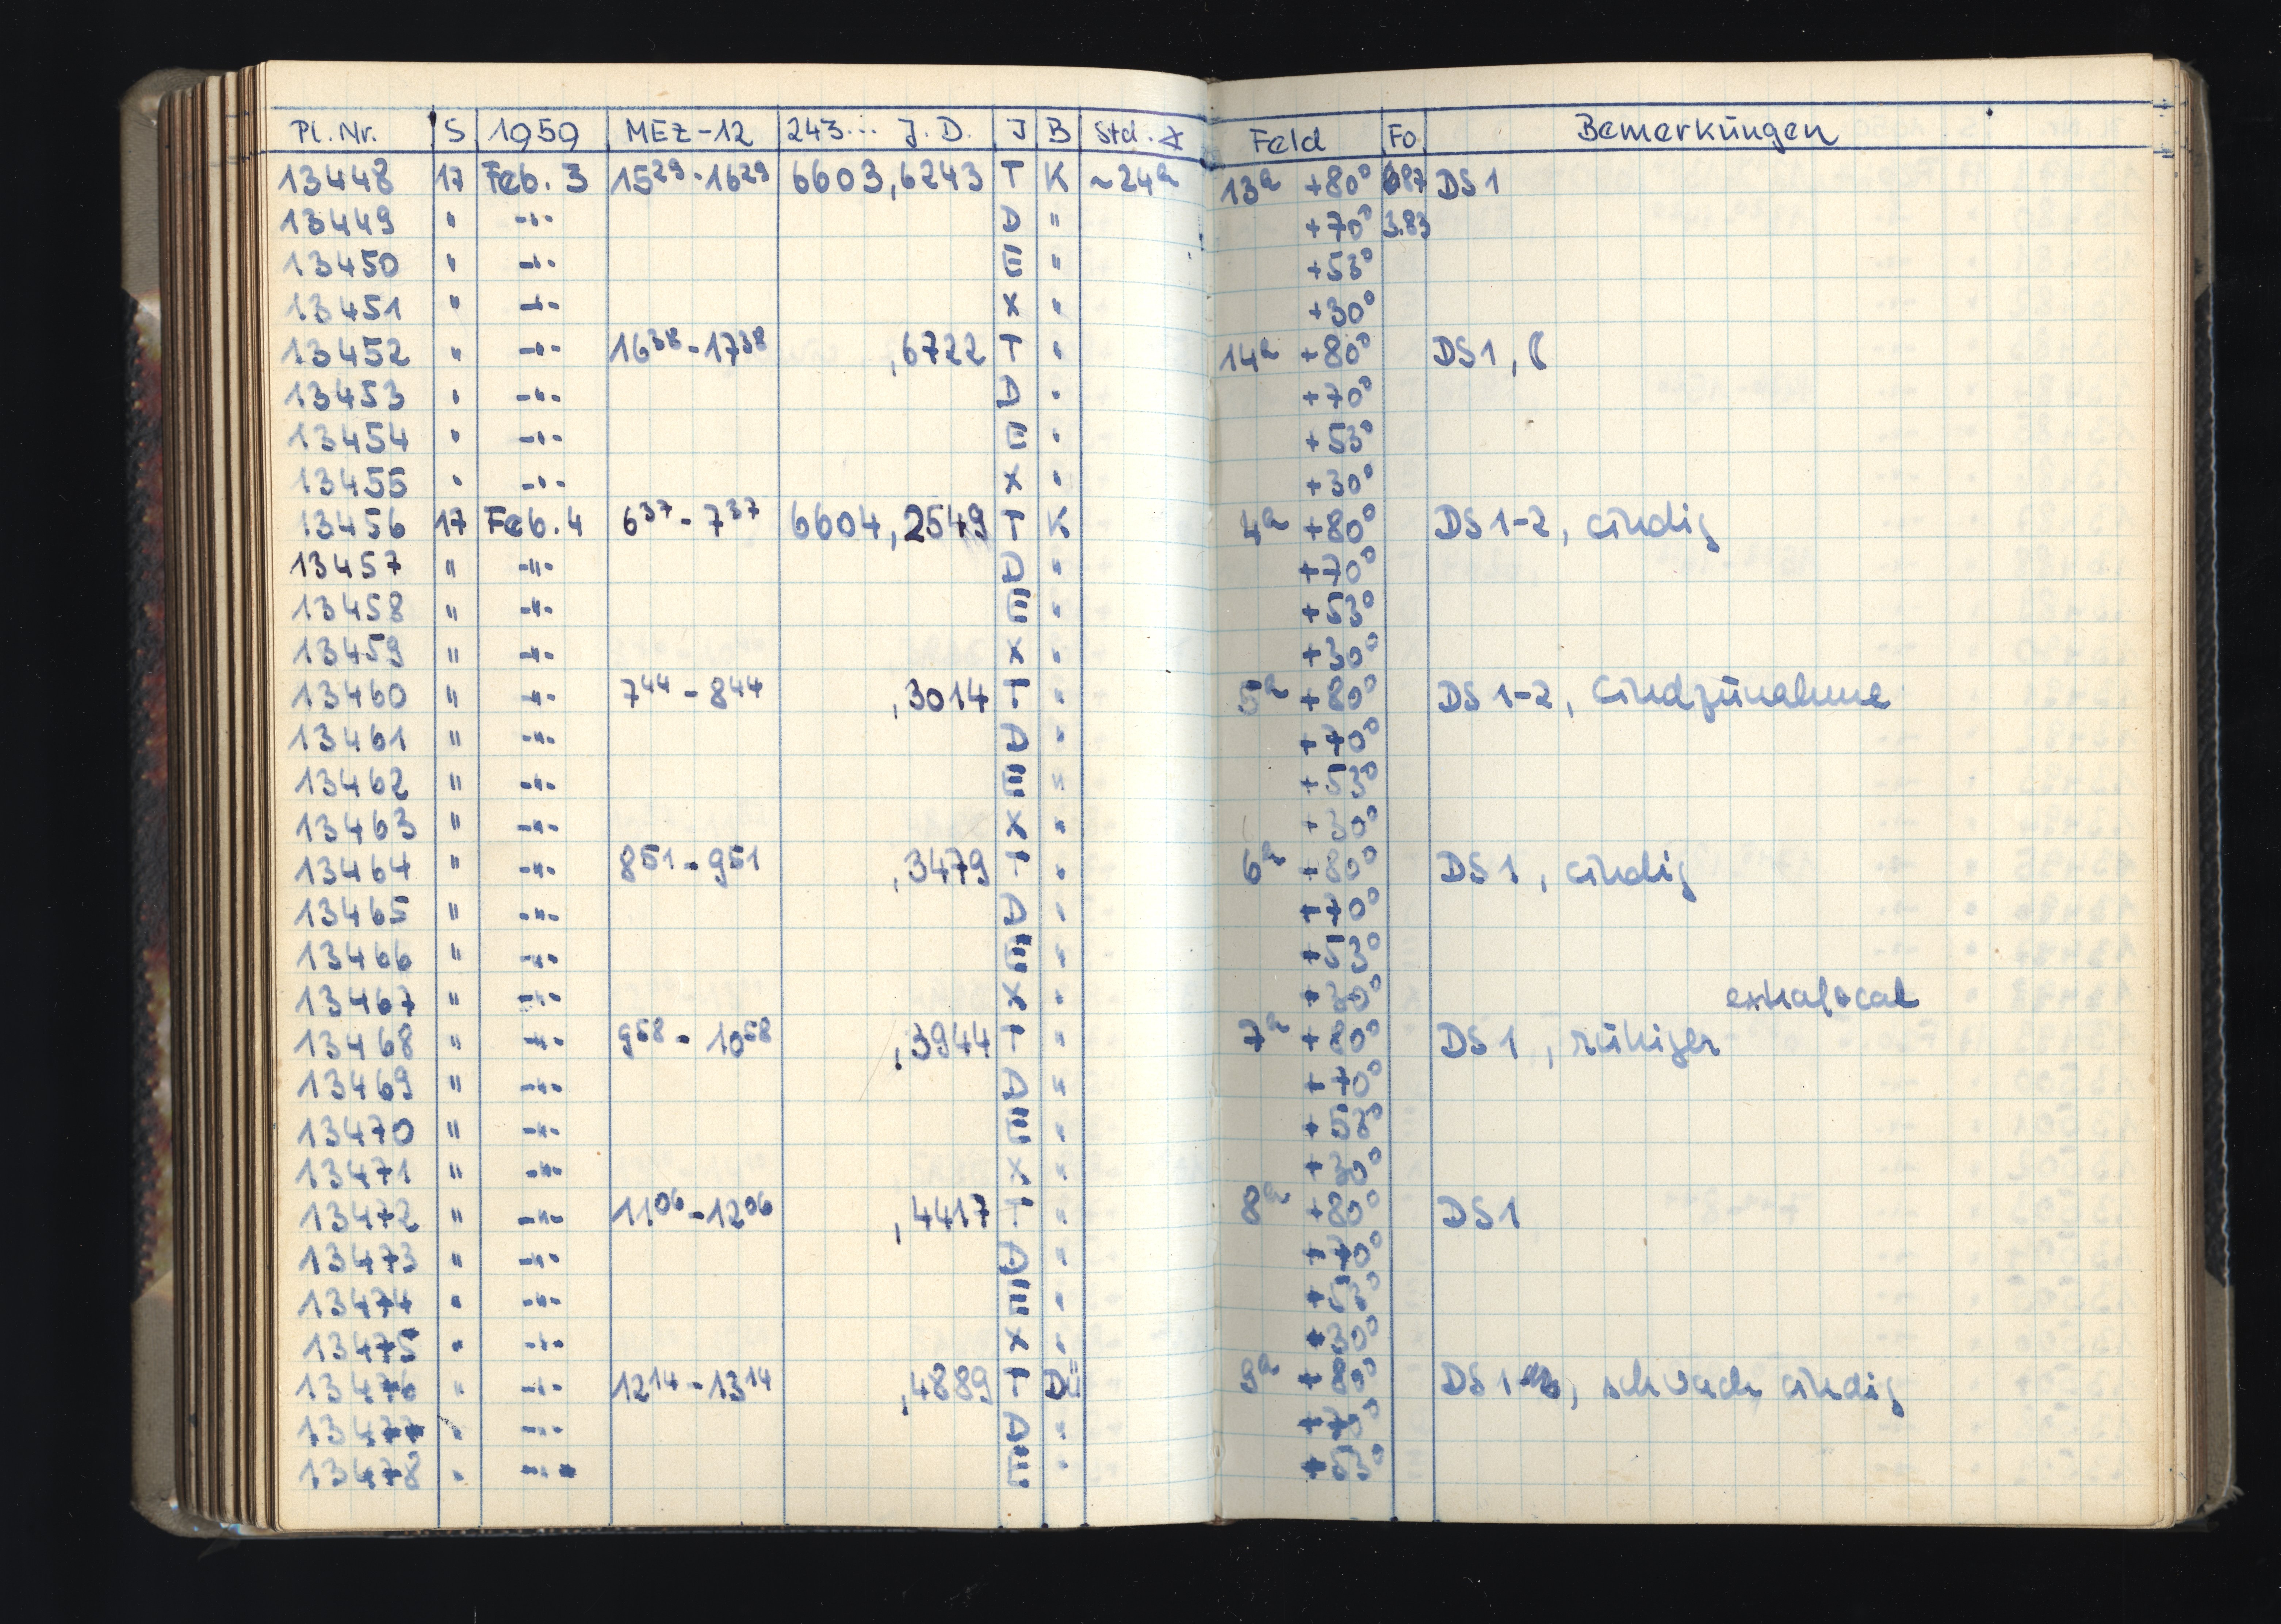 Pl. Nr. S 1959 MEZ-12 243... J.D. J B Std. ∡ Feld Fo. Bemerkungen
13448 17 Feb. 3 15²⁹-16²⁹ 6603,6243 T K ~24ᵃ 13ᵃ +80° 87 DS 1
13449 " -"- D " +70° 3.83
13450 " -"- E " +53°
13451 " -"- X " +30°
13452 " -"- 16³⁸-17³⁸ ,6722 T " 14ᵃ +80° DS 1,
13453 " -"- D " +70°
13454 " -"- E " +53°
13455 " -"- X " +30°
13456 17 Feb. 4 6³⁷-7³⁷ 6604,2549 T K 4ᵃ +80° DS 1-2, windig
13457 " -"- D " +70°
13458 " -"- E " +53°
13459 " -"- X " +30°
13460 " -"- 7⁴⁴-8⁴⁴ ,3014 T " 5ᵃ +80° DS 1-2, Windzunahme
13461 " -"- D " +70°
13462 " -"- E " +53°
13463 " -"- X " +30°
13464 " -"- 8⁵¹-9⁵¹ ,3479 T " 6ᵃ +80° DS 1, windig
13465 " -"- D " +70°
13466 " -"- E " +53°
13467 " -"- X " +30° extrafocal
13468 " -"- 9⁵⁸-10⁵⁸ ,3944 T " 7ᵃ +80° DS 1, ruhiger
13469 " -"- D " +70°
13470 " -"- E " +53°
13471 " -"- X " +30°
13472 " -"- 11⁰⁶-12⁰⁶ ,4417 T " 8ᵃ +80° DS 1
13473 " -"- D " +70°
13474 " -"- E " +53°
13475 " -"- X " +30°
13476 " -"- 12¹⁴-13¹⁴ ,4889 T Dü 9ᵃ +80° DS 1, schwach windig
13477 " -"- D " +70°
13478 " -"- E " +53°